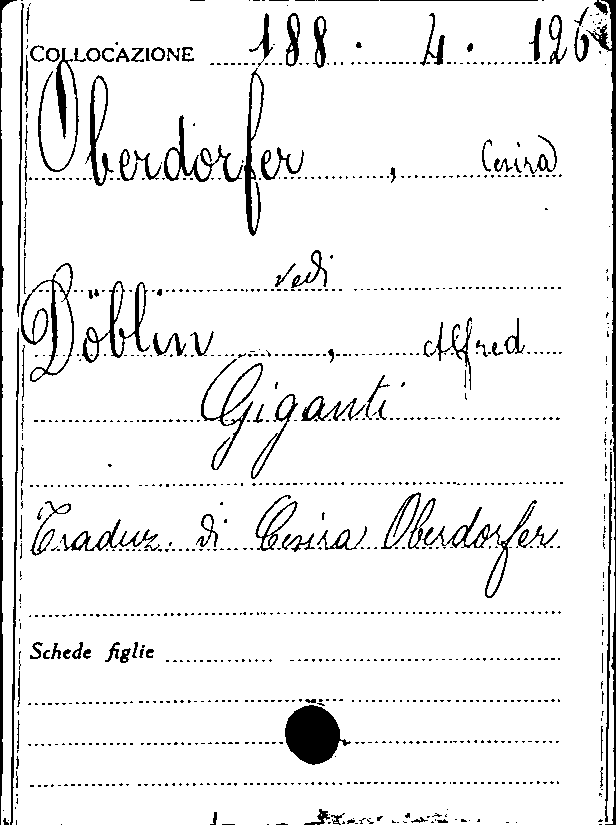 COLLOCAZIONE 188. 4. 126
Oberdorfer, Cesira
vedi
Döblin, Alfred
Giganti
Traduz. di Cesira Oberdorfer
Schede figlie